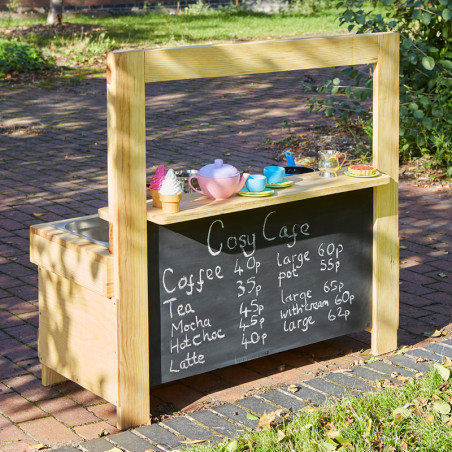 Cosy Cafe
Coffee 40p large 60p
Tea 35p pot 55p
Mocha 45p large 65p
Hot Choc 45p with cream 60p
Latte 40p large 62p